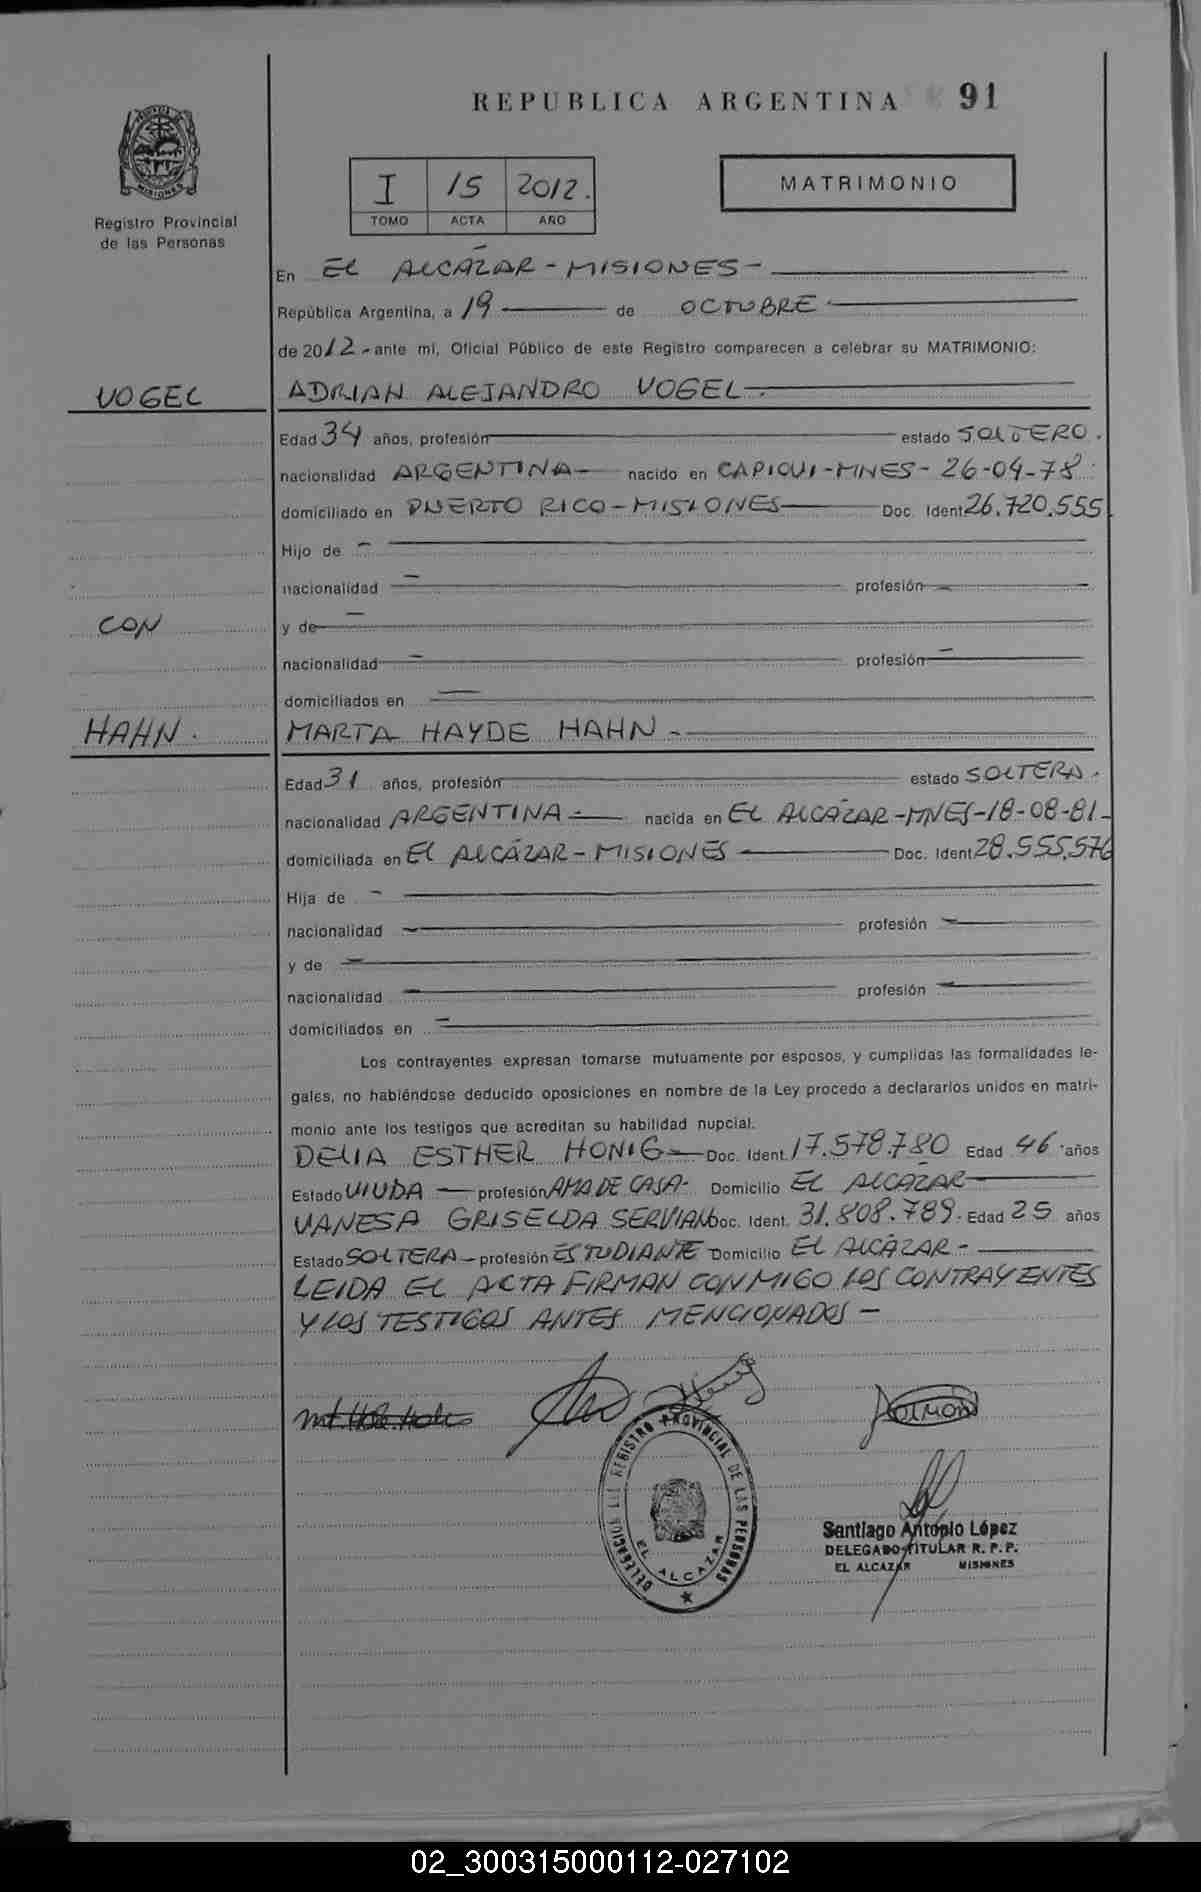 REPUBLICA ARGENTINA 91
MISIONES
Registro Provincial
de las Personas
I 15 2012.
TOMO ACTA AÑO
MATRIMONIO
En EL ALCÁZAR - MISIONES -
República Argentina, a 19 de OCTUBRE
de 2012 - ante mí, Oficial Público de este Registro comparecen a celebrar su MATRIMONIO:
VOGEL
ADRIAN ALEJANDRO VOGEL
Edad 34 años, profesión estado SOLTERO.
nacionalidad ARGENTINA - nacido en CAPIOVI - MNES - 26-04-78
domiciliado en PUERTO RICO - MISIONES Doc. Ident 26.720.555
Hijo de -
nacionalidad - profesión -
CON
y de -
nacionalidad - profesión -
domiciliados en -
HAHN.
MARTA HAYDE HAHN -
Edad 31 años, profesión estado SOLTERA.
nacionalidad ARGENTINA - nacida en EL ALCÁZAR - MNES - 18-08-81 -
domiciliada en EL ALCÁZAR - MISIONES Doc. Ident 28.555.576
Hija de -
nacionalidad - profesión -
y de -
nacionalidad - profesión -
domiciliados en -
Los contrayentes expresan tomarse mutuamente por esposos, y cumplidas las formalidades le-
gales, no habiéndose deducido oposiciones en nombre de la Ley procedo a declararlos unidos en matri-
monio ante los testigos que acreditan su habilidad nupcial:
DELIA ESTHER HONIG Doc. Ident. 17.578.780 Edad 46 años
Estado VIUDA - profesión AMA DE CASA - Domicilio EL ALCÁZAR
VANESA GRISELDA SERVIAN Doc. Ident. 31.808.789. Edad 25 años
Estado SOLTERA - profesión ESTUDIANTE Domicilio EL ALCÁZAR -
LEIDA EL ACTA FIRMAN CONMIGO LOS CONTRAYENTES
Y LOS TESTIGOS ANTES MENCIONADOS -
REGISTRO PROVINCIAL DE LAS PERSONAS
EL ALCAZAR
Santiago Antonio López
DELEGADO TITULAR R. P. P.
EL ALCAZAR MISIONES
02_300315000112-027102